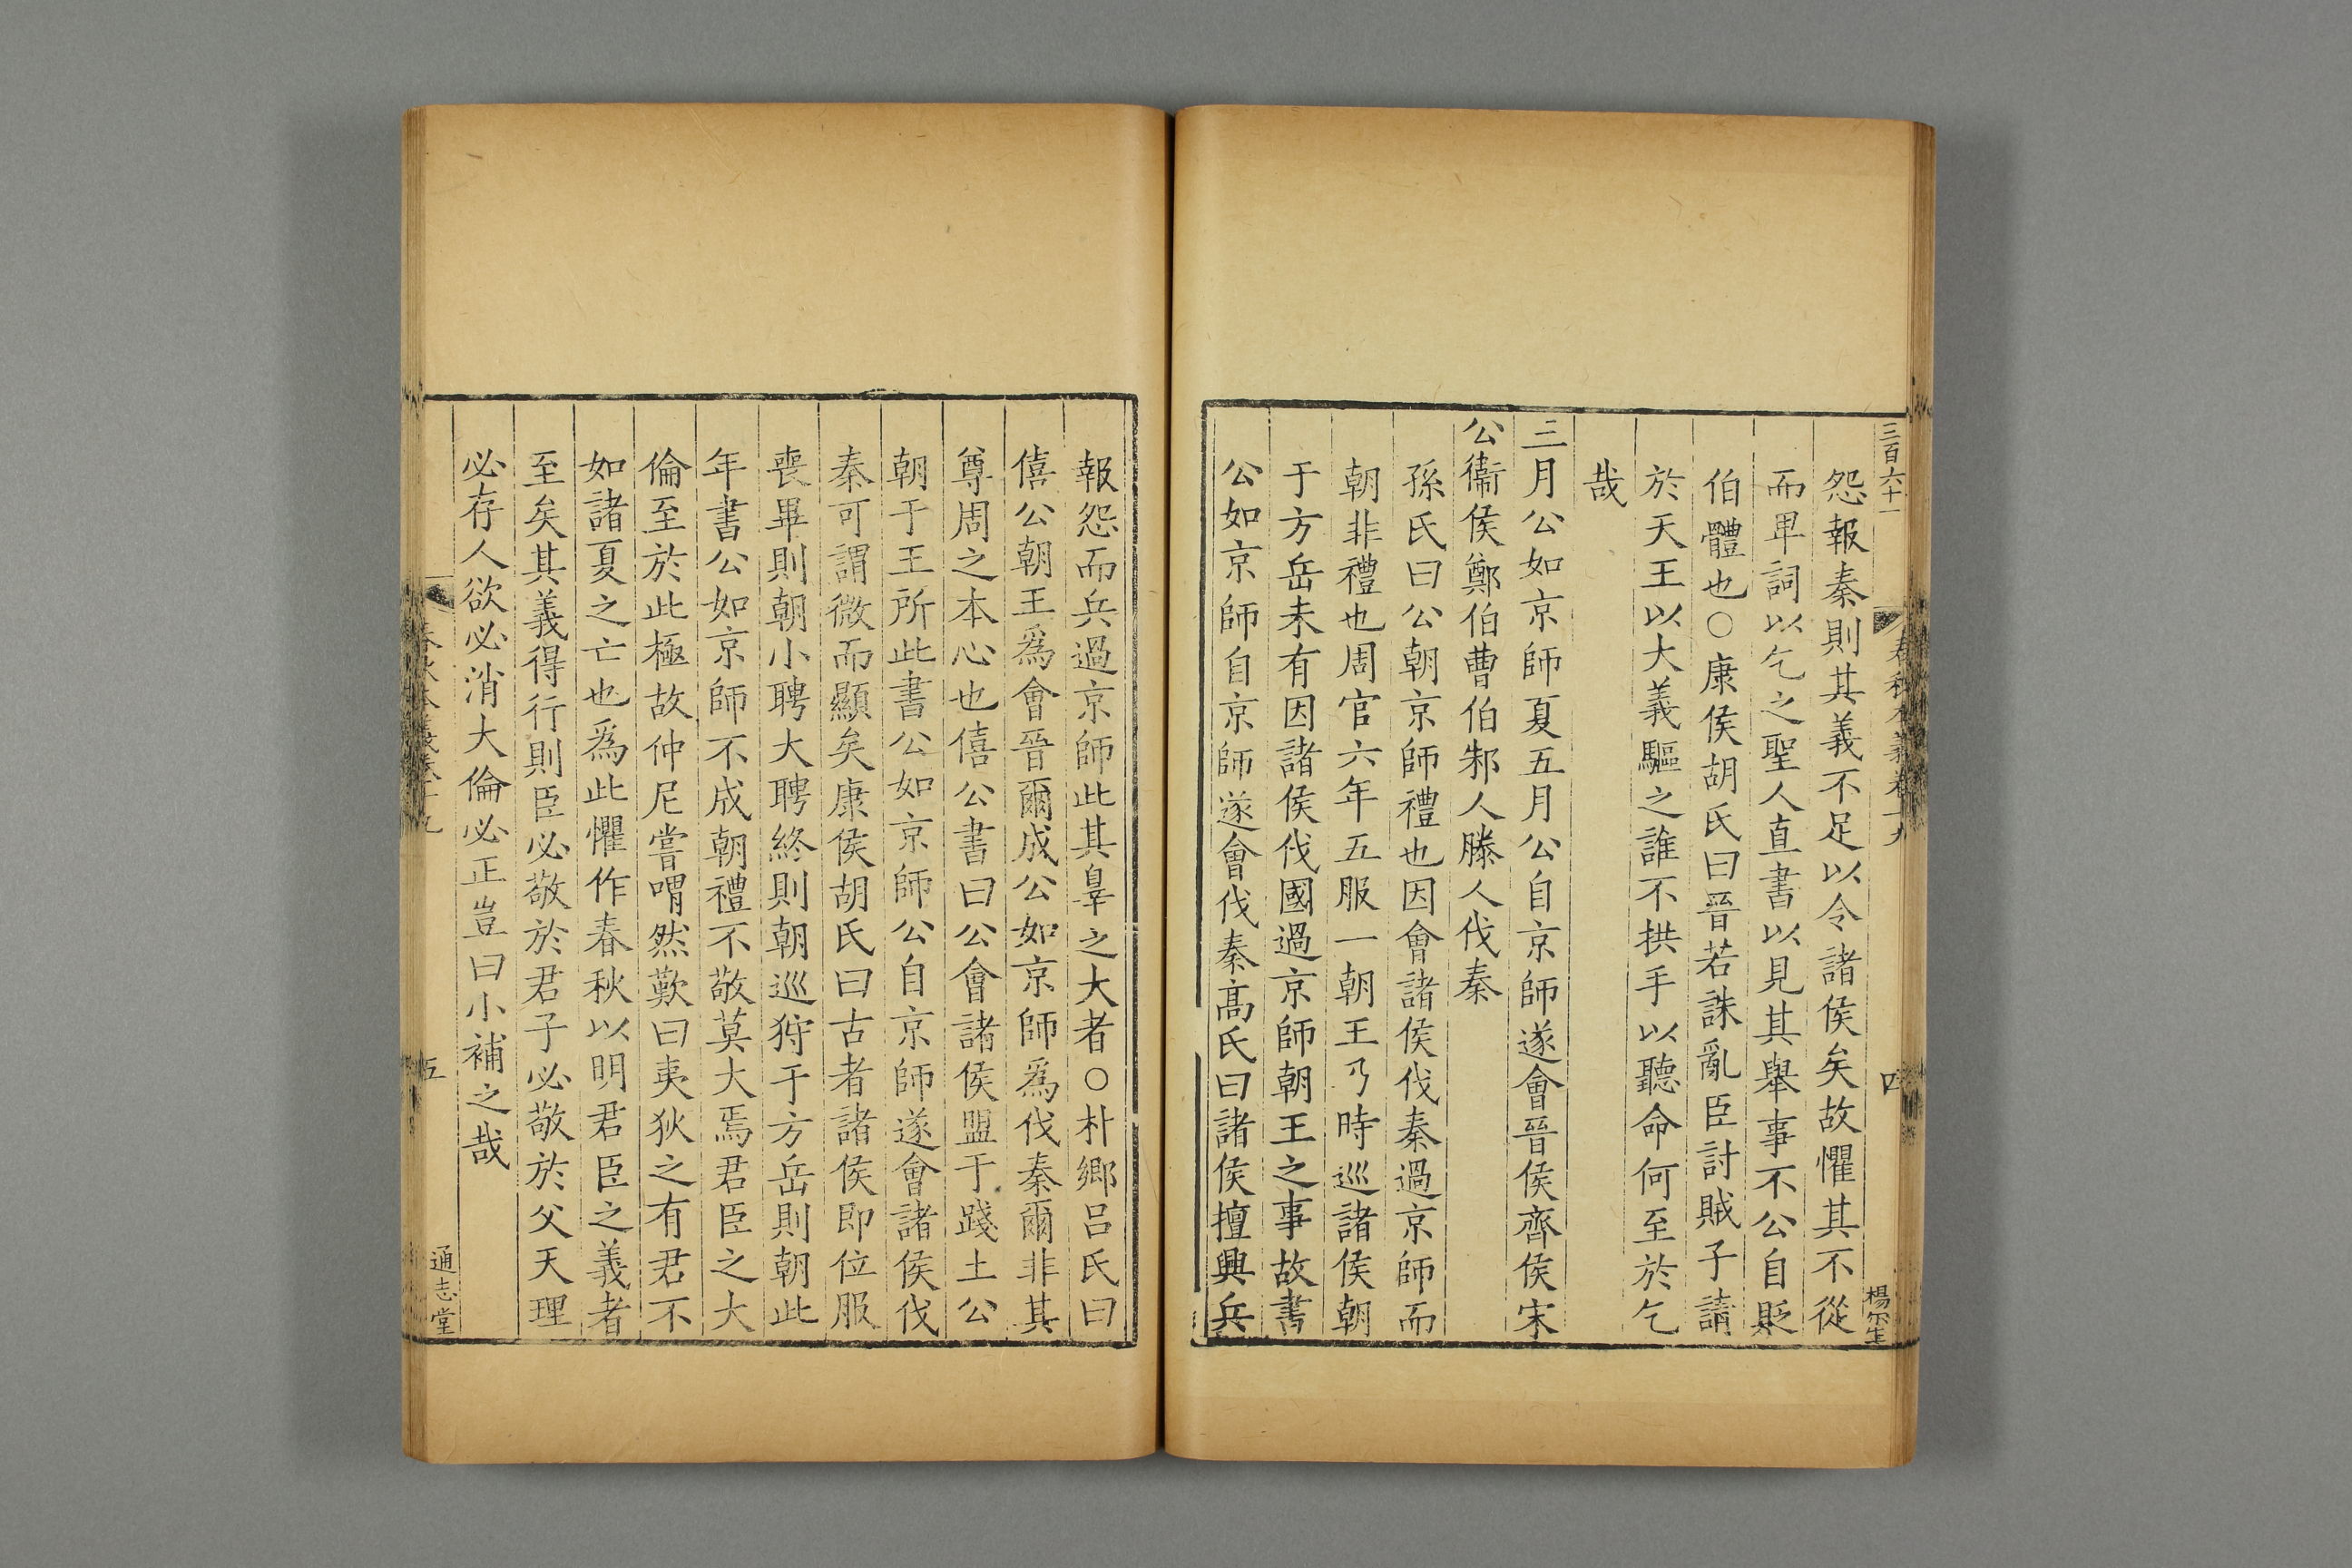 三百六十一
春秋本義卷十九
四
楊宗生
怨報秦則其義不足以令諸侯矣故懼其不從
而卑詞以乞之聖人直書以見其舉事不公自貶
伯體也○康侯胡氏曰晉若誅亂臣討賊子請
於天王以大義驅之誰不拱手以聽命何至於乞
哉
三月公如京師夏五月公自京師遂會晉侯齊侯宋
公衞侯鄭伯曹伯邾人滕人伐秦
孫氏曰公朝京師禮也因會諸侯伐秦過京師而
朝非禮也周官六年五服一朝王乃時巡諸侯朝
于方岳未有因諸侯伐國過京師朝王之事故書
公如京師自京師遂會伐秦高氏曰諸侯擅興兵
報怨而兵過京師此其辠之大者○朴鄉呂氏曰
僖公朝王爲會晉爾成公如京師爲伐秦爾非其
尊周之本心也僖公書曰公會諸侯盟于踐土公
朝于王所此書公如京師公自京師遂會諸侯伐
秦可謂微而顯矣康侯胡氏曰古者諸侯即位服
喪畢則朝小聘大聘終則朝巡狩于方岳則朝此
年書公如京師不成朝禮不敬莫大焉君臣之大
倫至於此極故仲尼嘗喟然歎曰夷狄之有君不
如諸夏之亡也爲此懼作春秋以明君臣之義者
至矣其義得行則臣必敬於君子必敬於父天理
必存人欲必消大倫必正豈曰小補之哉
春秋本義卷十九
五
通志堂